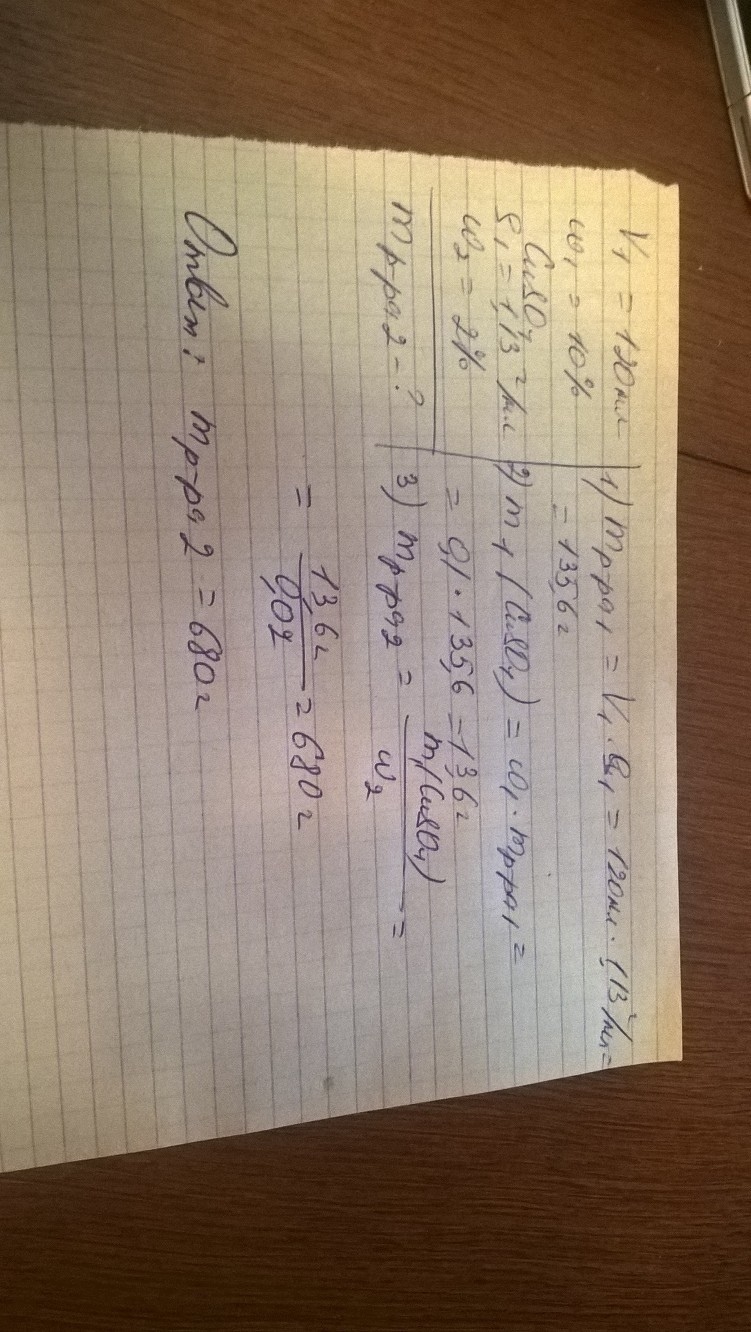 V₁ = 120мл
ω₁ = 10%
CuSO₄
ρ₁ = 1,13 г/мл
ω₂ = 2%
m р-ра 2 - ?
1) m р-ра 1 = V₁ · ρ₁ = 120мл · 1,13 г/мл =
= 135,6 г
2) m₁ (CuSO₄) = ω₁ · m р-ра 1 =
= 0,1 · 135,6 = 13,6 г
3) m р-ра 2 = m₁(CuSO₄) / ω₂ =
= 13,6 г / 0,02 = 680 г
Ответ: m р-ра 2 = 680 г